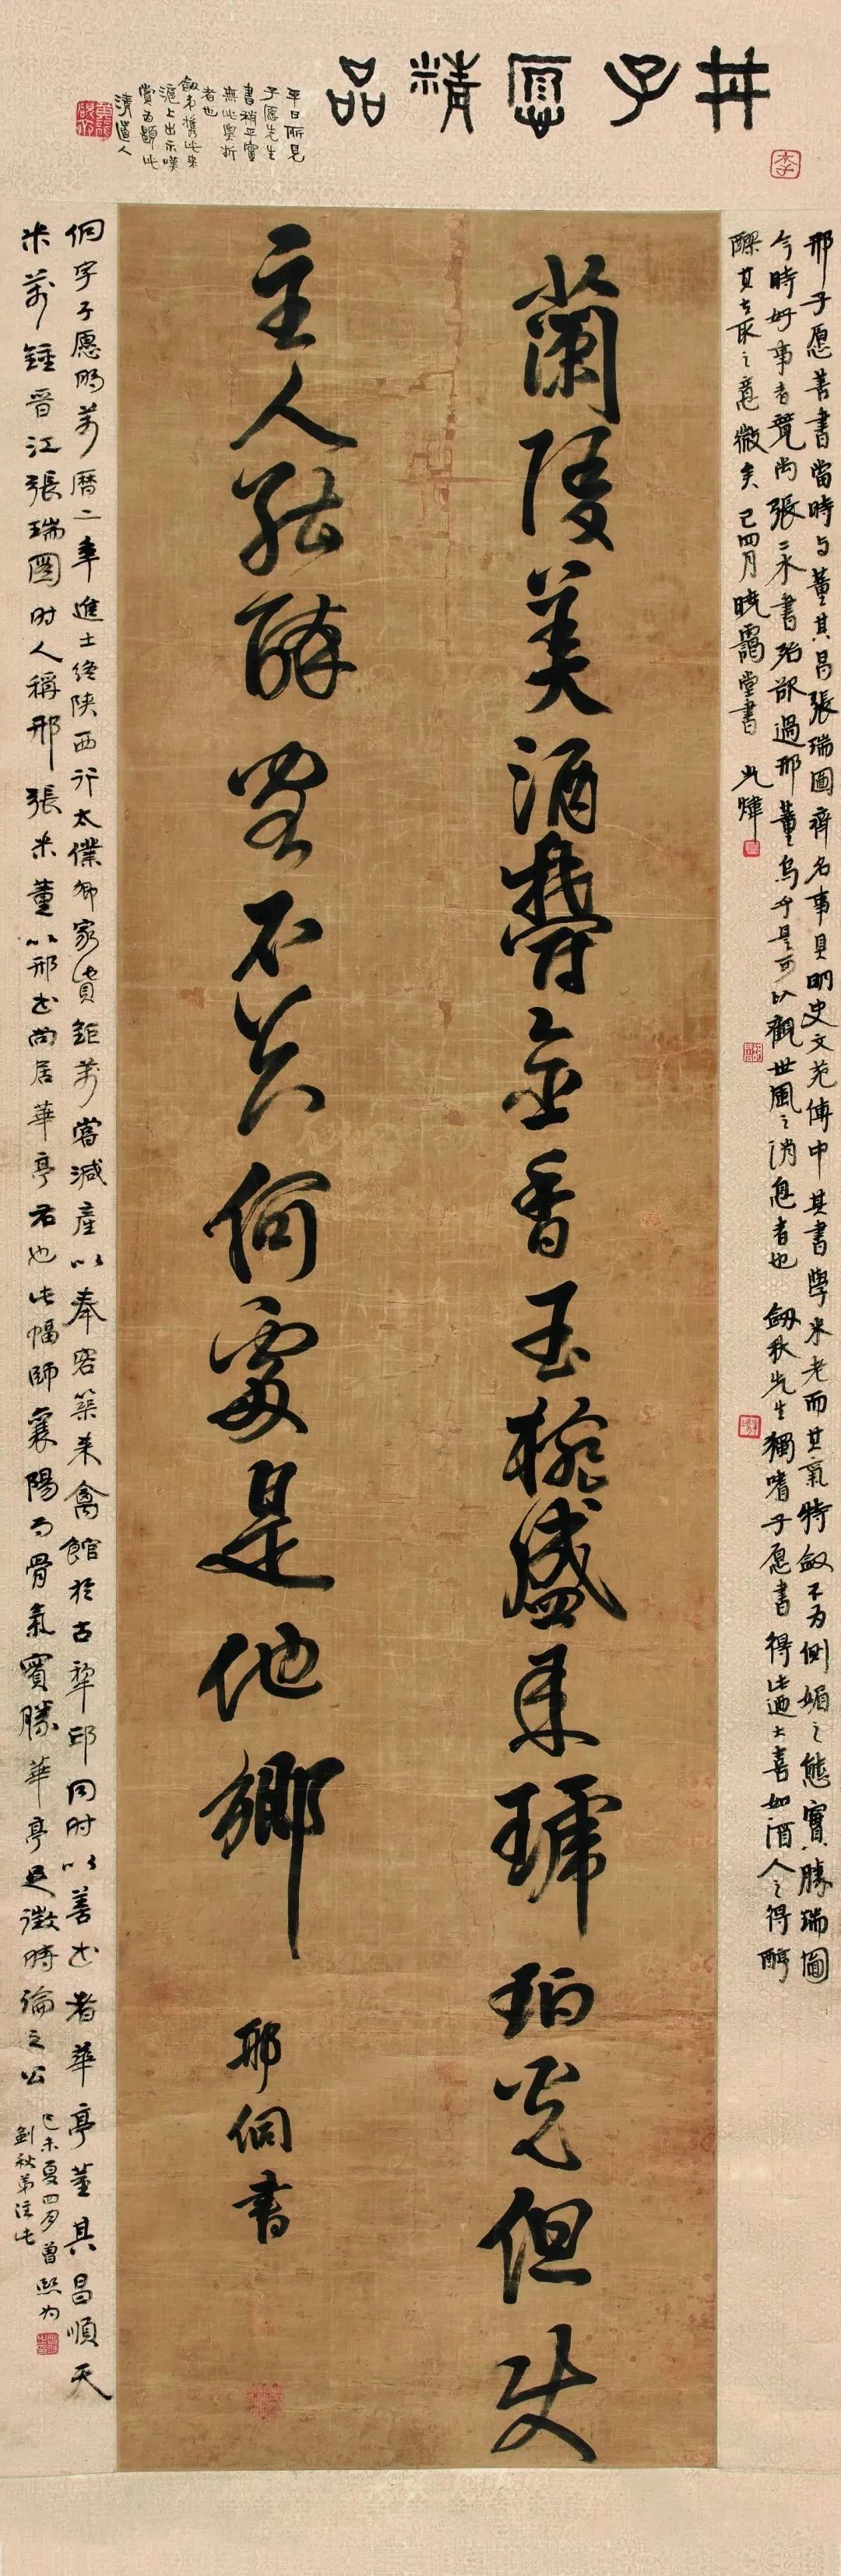 邢子愿精品
平日所見
子愿先生
書稍平實
無此奥折
者也
劍秋攜此來
滬上出示嘆
賞為題此
清道人
蘭陵美酒鬱金香玉椀盛來琥珀光但使
主人能醉客不知何處是他鄉
邢侗書
邢子愿善書當時與董其昌張瑞圖齊名事具明史文苑傳中其書學米老而其氣特斂不為側媚之態實勝瑞圖
今時好事者覽尚張二水書殆欲過邢董烏乎是可以觀世風之消息者也 劍秋先生獨嗜子愿書得此過大喜如酒人之得醇
醪其去取之意微矣 己四月 曉靄堂書
侗字子愿明萬曆二年進士終陝西行太僕卿家貲鉅萬嘗減產以奉客築來禽館於古犂邱同時以善書者華亭董其昌順天
米萬鍾晉江張瑞圖時人稱邢張米董以邢書尚居華亭右也此幅師襄陽而骨氣實勝華亭足徵時論之公
己未夏四月曾熙為
劍秋弟注此